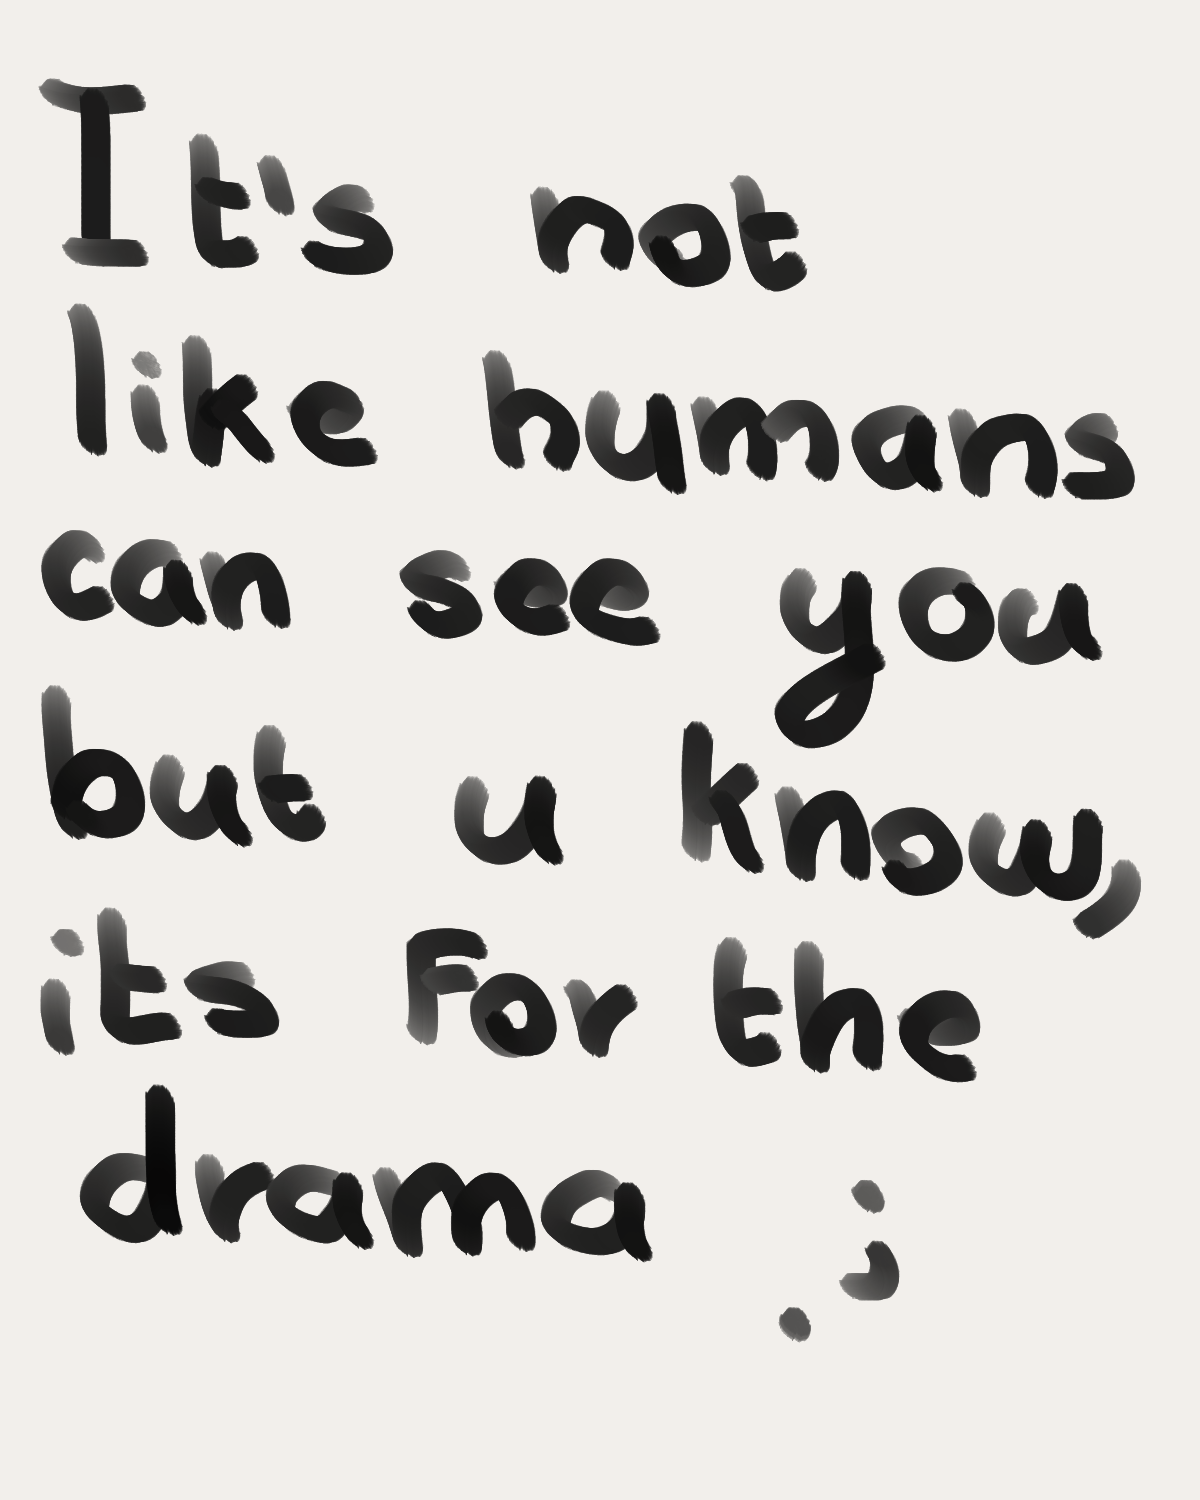 It's not
like humans
can see you
but u know,
its For the
drama ;
.